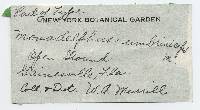 Part of Type.
NEW YORK BOTANICAL GARDEN
Monadelphus umbriniceps
Open Ground
Gainesville, Fla
Coll & Det. W. A. Murrill